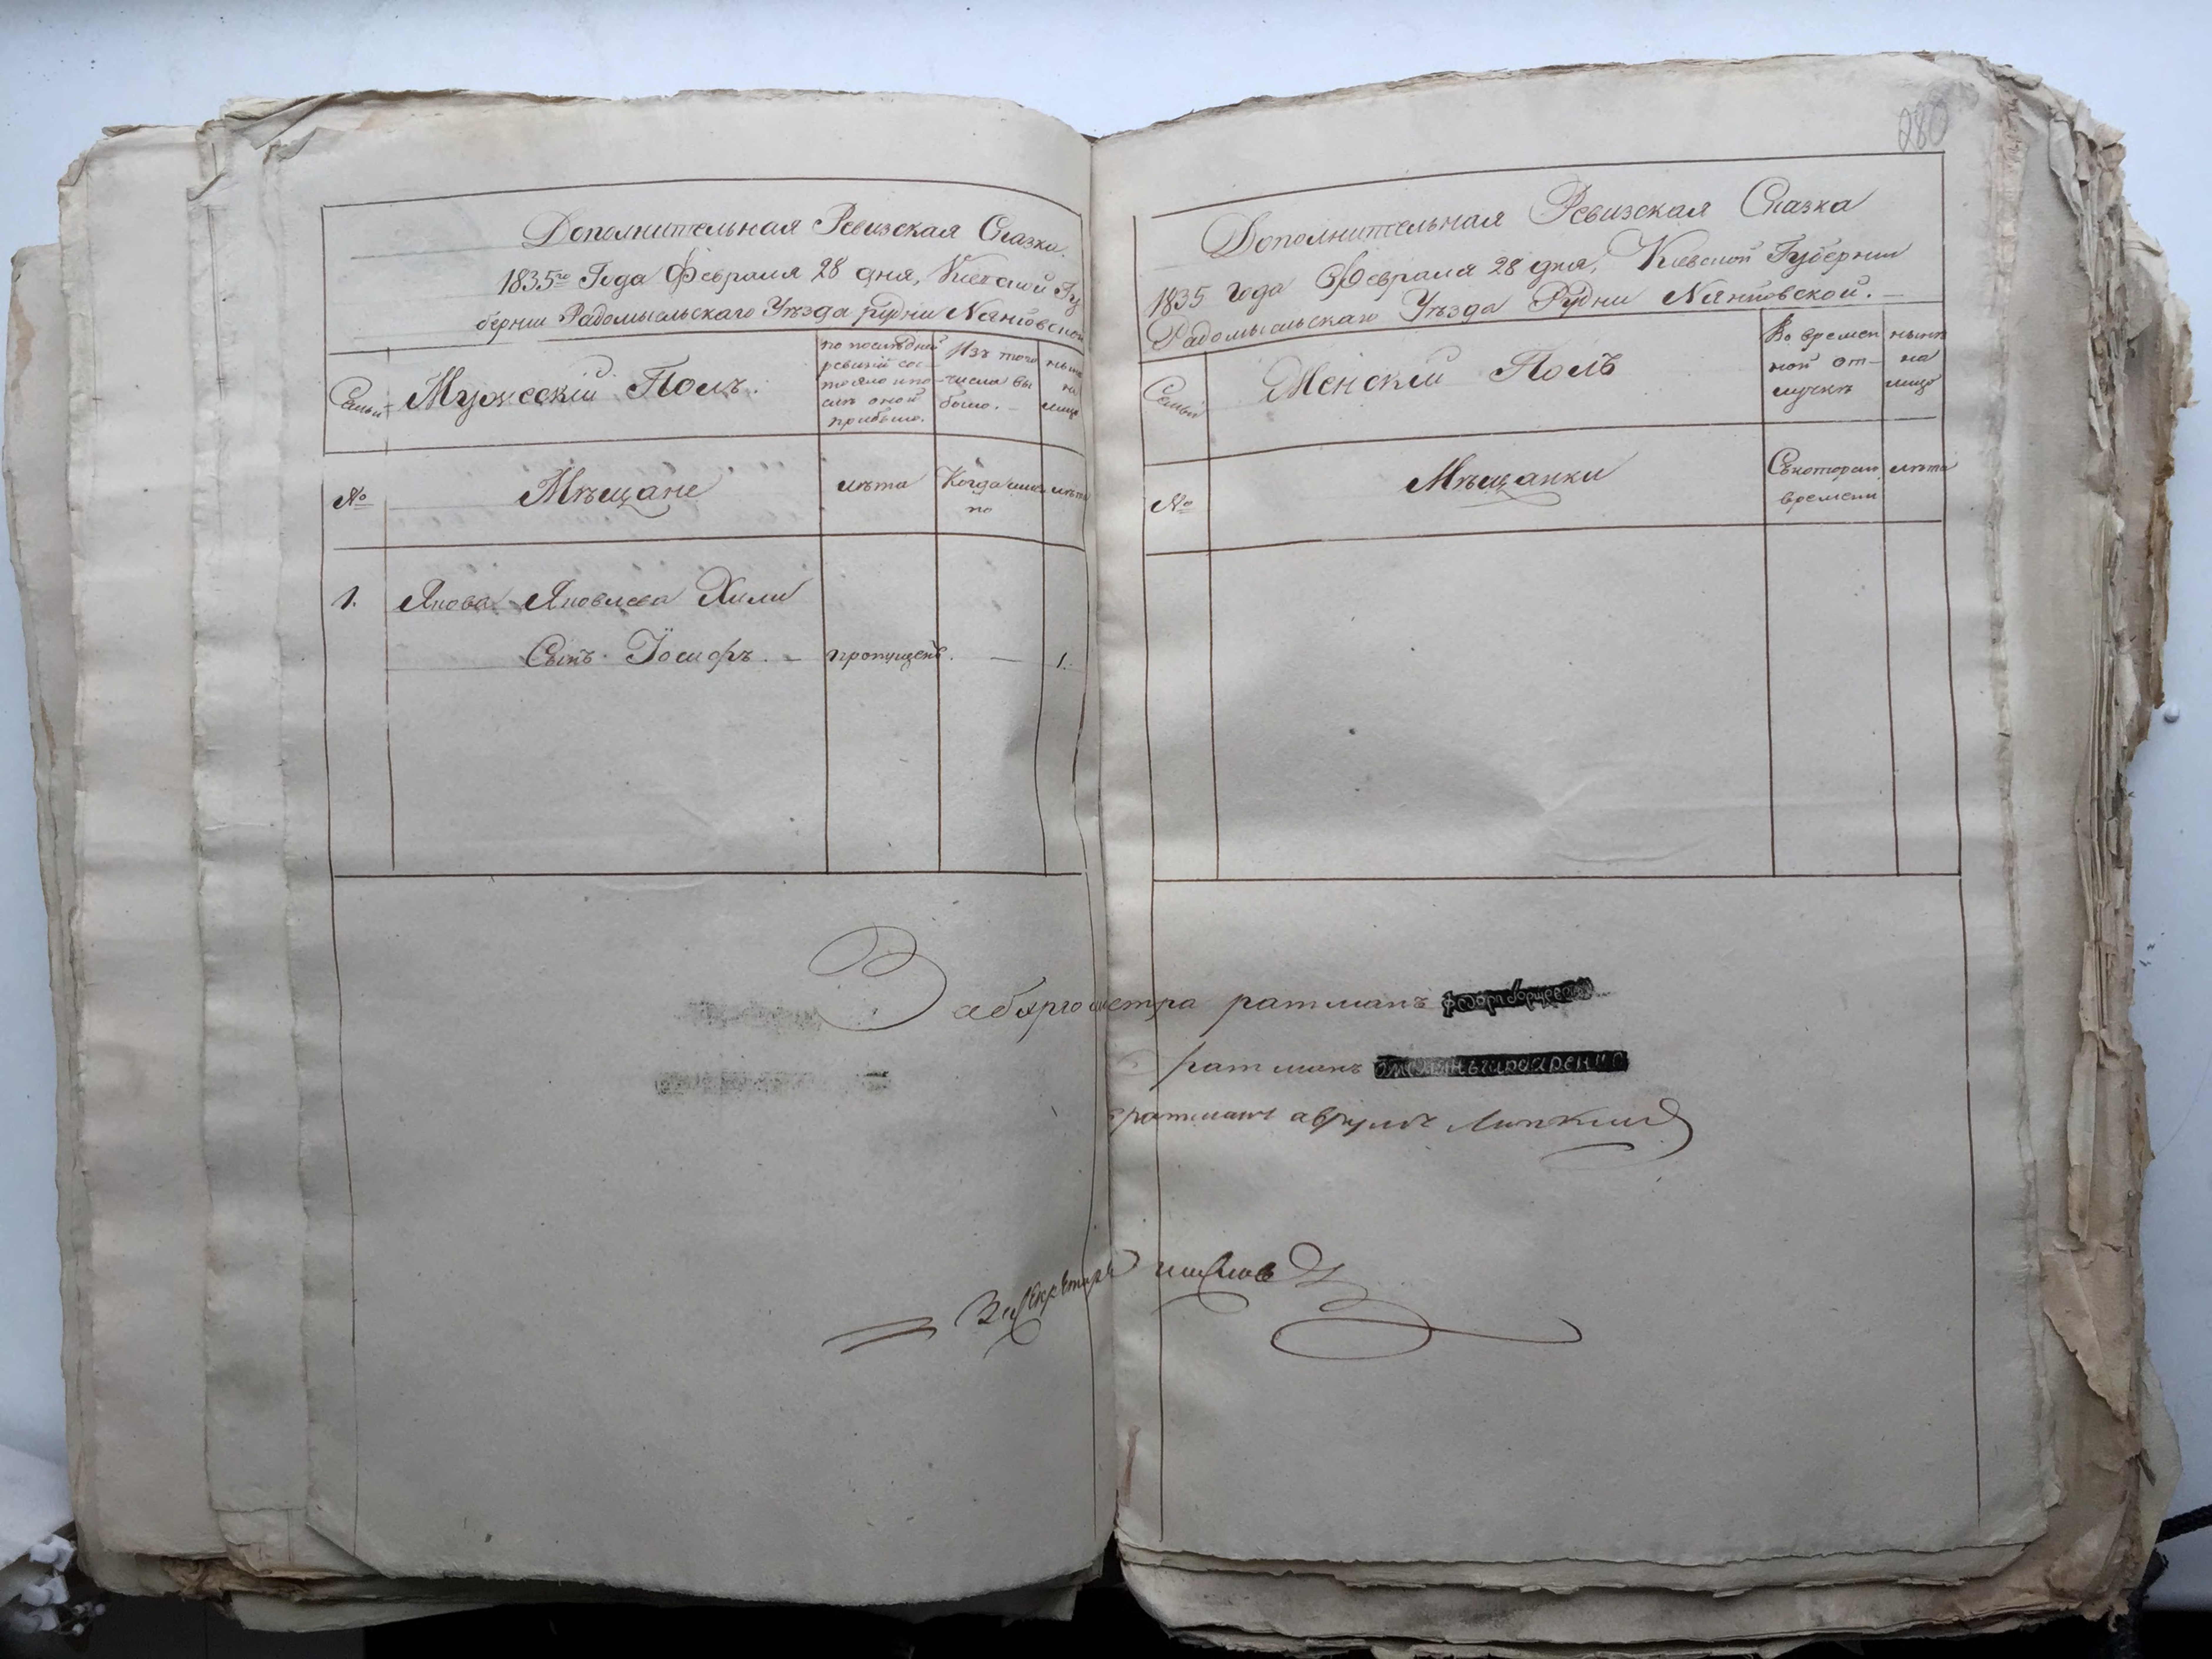 Дополнительная Ревизская Сказка.
1835го Года Февраля 28 дня, Киевской Гу
бернии Радомысльскаго Уѣзда рудни
Семьи
Мужескій Полъ.
по послѣдней
ревизіи сос-
тояло и по-
слѣ оной
прибыло.
Изъ того
числа вы
было.
нынѣ
на
лицо
№
Мѣщане
лѣта
Когда имен
но
лѣта
1.
Янова Яковлева Хили
Сынъ Іосифъ. —
пропущенъ.
—
1.
280
Дополнительная Ревизская Сказка
1835 года Февраля 28 дня, Киевской Губернии
Радомысльскаго Уѣзда Рудни
Семьи
Женскій Полъ
Во времен
ной от-
лучкѣ
нынѣ
на
лицо
№
Мѣщанки
Съ котораго
времени
лѣта
За бургомистра ратманъ
ратманъ
ратманъ
За Секретаря